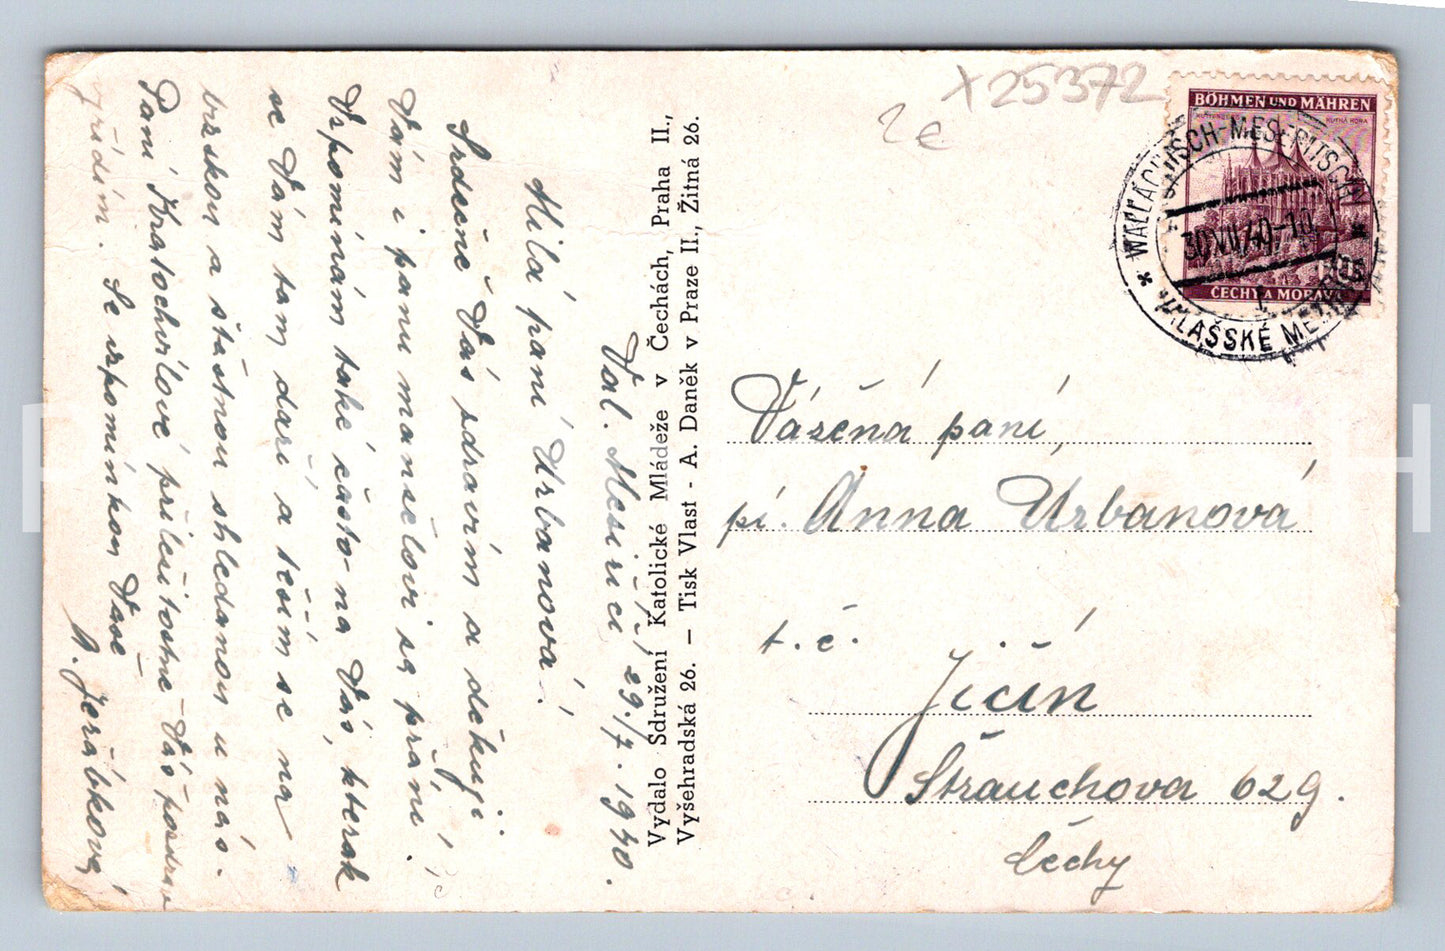 x 25372
2 €
BÖHMEN UND MÄHREN
KUTNÁ HORA
ČECHY A MORAVA
30.VII.40-10
VALAŠSKÉ
Vážená paní,
pí. Anna Urbanová
t. č.
Jičín
Štrauchova 629.
Čechy
Vydalo Sdružení Katolické Mládeže v Čechách, Praha II.,
Vyšehradská 26. — Tisk Vlast - A. Daněk v Praze II., Žitná 26.
Val. Meziříčí, 29./7. 1940.
Milá paní Urbanová!
Srdečně Vás zdravím a děkuji
Vám i panu manželovi za přání.
Vzpomínám také často na Vás, kterak
se Vám tam daří a těším se na
brzskou a šťastnou shledanou u nás.
Paní Kratochvílové příležitostně Vás pozdrav
vyřídím. Se vzpomínkou Vaše
A. Jeřábková